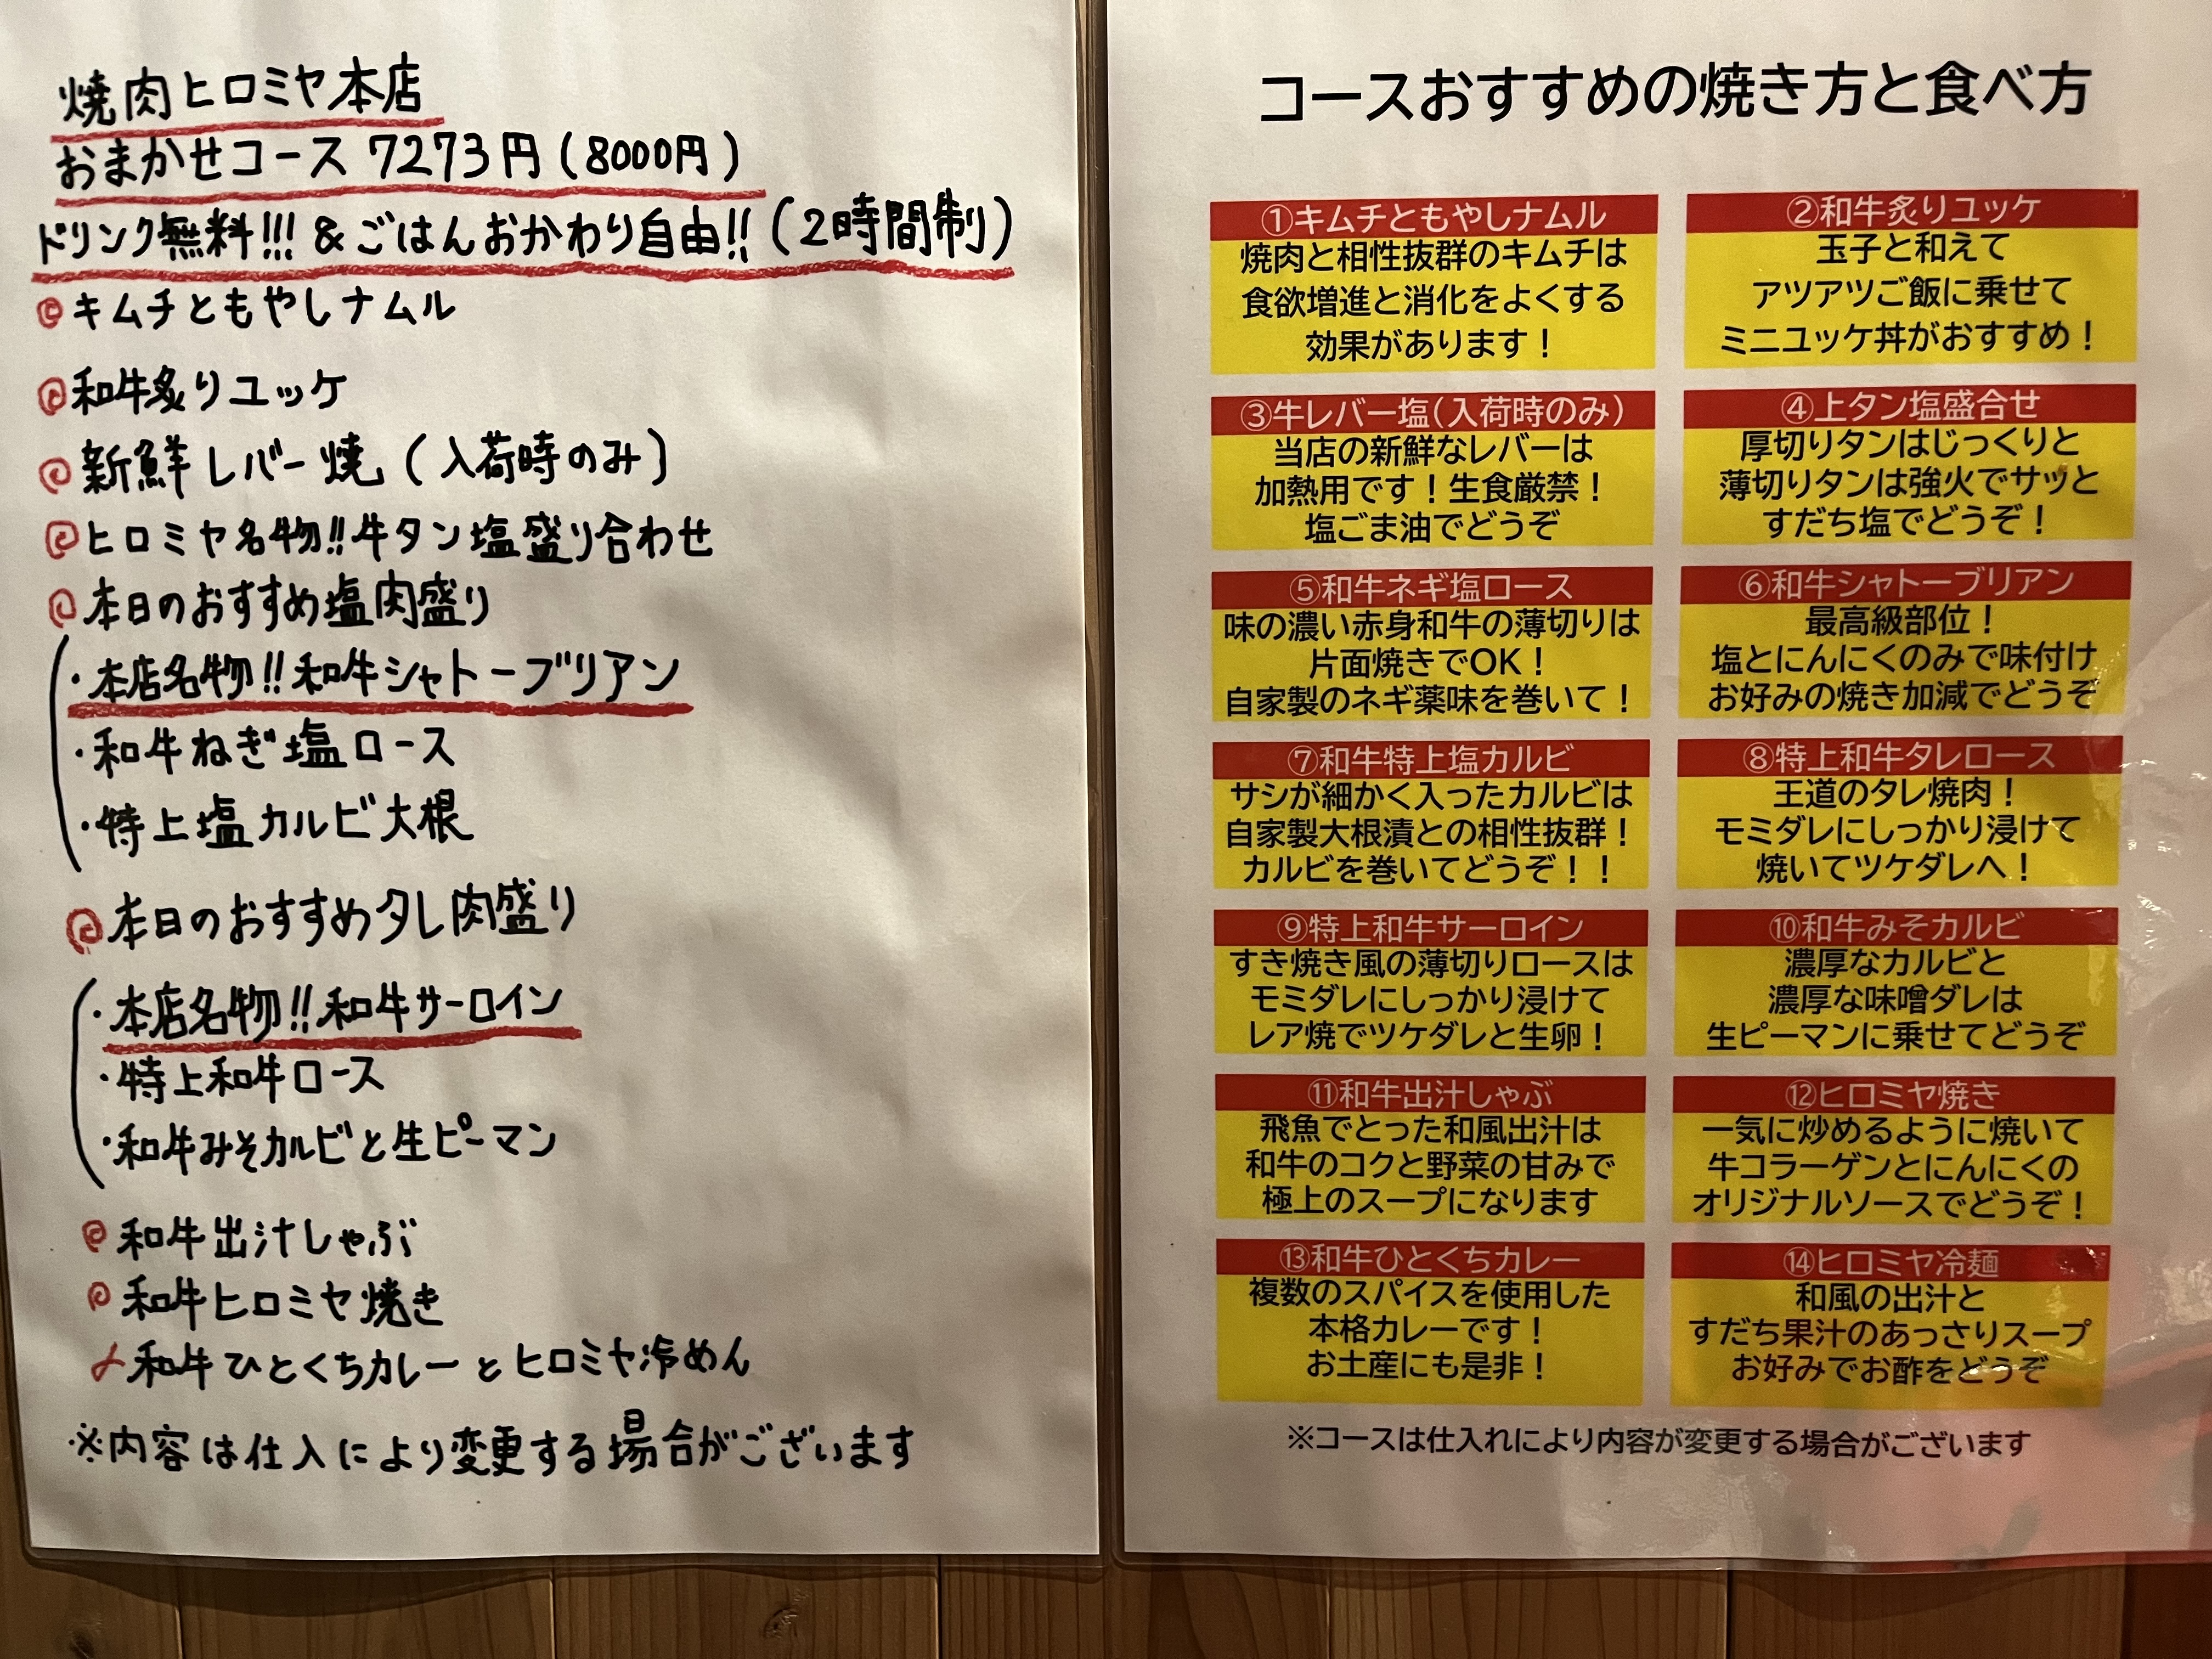 焼肉ヒロミヤ本店
おまかせコース 7273円(8000円)
ドリンク無料!!! & ごはんおかわり自由!! (2時間制)
キムチともやしナムル
和牛炙りユッケ
新鮮レバー焼 (入荷時のみ)
ヒロミヤ名物!!牛タン塩盛り合わせ
本日のおすすめ塩肉盛り
・本店名物!!和牛シャトーブリアン
・和牛ねぎ塩ロース
・特上塩カルビ大根
本日のおすすめタレ肉盛り
・本店名物!!和牛サーロイン
・特上和牛ロース
・和牛みそカルビと生ピーマン
和牛出汁しゃぶ
和牛ヒロミヤ焼き
〆和牛ひとくちカレーとヒロミヤ冷めん
※内容は仕入により変更する場合がございます
コースおすすめの焼き方と食べ方
①キムチともやしナムル
焼肉と相性抜群のキムチは
食欲増進と消化をよくする
効果があります！
②和牛炙りユッケ
玉子と和えて
アツアツご飯に乗せて
ミニユッケ丼がおすすめ！
③牛レバー塩(入荷時のみ)
当店の新鮮なレバーは
加熱用です！生食厳禁！
塩ごま油でどうぞ
④上タン塩盛合せ
厚切りタンはじっくりと
薄切りタンは強火でサッと
すだち塩でどうぞ！
⑤和牛ネギ塩ロース
味の濃い赤身和牛の薄切りは
片面焼きでOK！
自家製のネギ薬味を巻いて！
⑥和牛シャトーブリアン
最高級部位！
塩とにんにくのみで味付け
お好みの焼き加減でどうぞ
⑦和牛特上塩カルビ
サシが細かく入ったカルビは
自家製大根漬との相性抜群！
カルビを巻いてどうぞ！！
⑧特上和牛タレロース
王道のタレ焼肉！
モミダレにしっかり浸けて
焼いてツケダレへ！
⑨特上和牛サーロイン
すき焼き風の薄切りロースは
モミダレにしっかり浸けて
レア焼でツケダレと生卵！
⑩和牛みそカルビ
濃厚なカルビと
濃厚な味噌ダレは
生ピーマンに乗せてどうぞ
⑪和牛出汁しゃぶ
飛魚でとった和風出汁は
和牛のコクと野菜の甘みで
極上のスープになります
⑫ヒロミヤ焼き
一気に炒めるように焼いて
牛コラーゲンとにんにくの
オリジナルソースでどうぞ！
⑬和牛ひとくちカレー
複数のスパイスを使用した
本格カレーです！
お土産にも是非！
⑭ヒロミヤ冷麺
和風の出汁と
すだち果汁のあっさりスープ
お好みでお酢をどうぞ
※コースは仕入れにより内容が変更する場合がございます